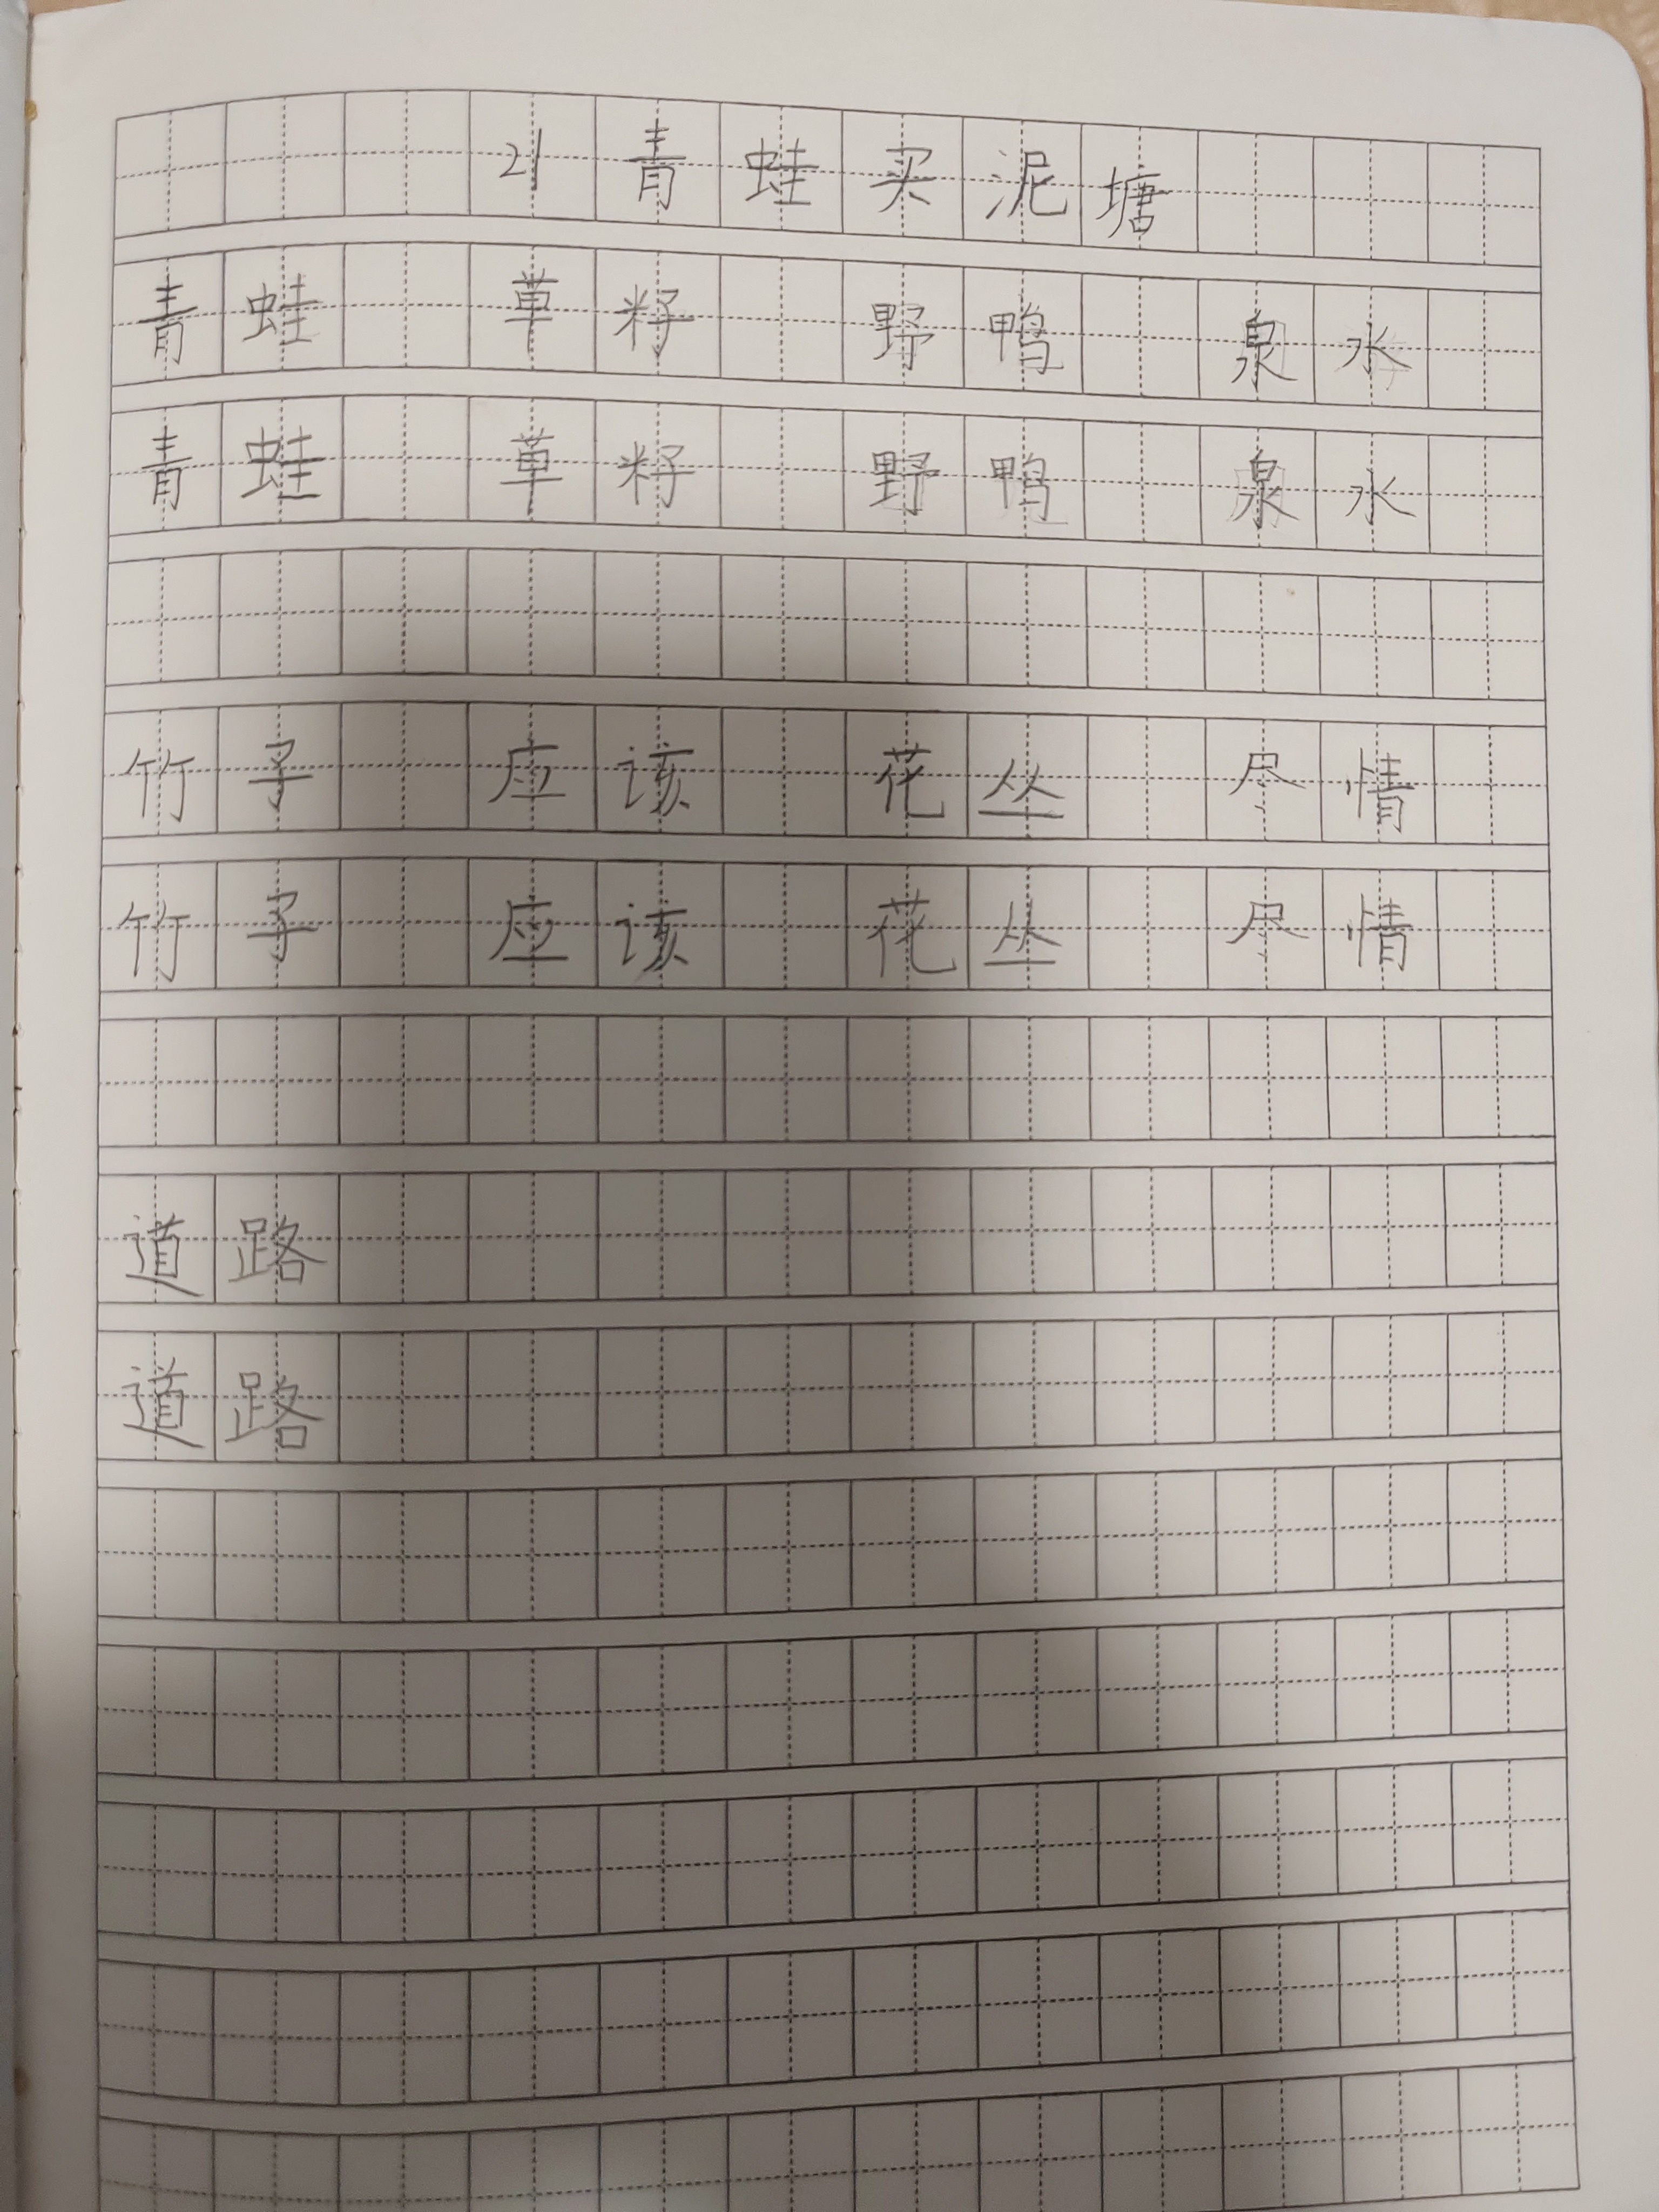 21 青蛙买泥塘
青蛙 草籽 野鸭 泉水
青蛙 草籽 野鸭 泉水
竹子 应该 花丛 尽情
竹子 应该 花丛 尽情
道路
道路